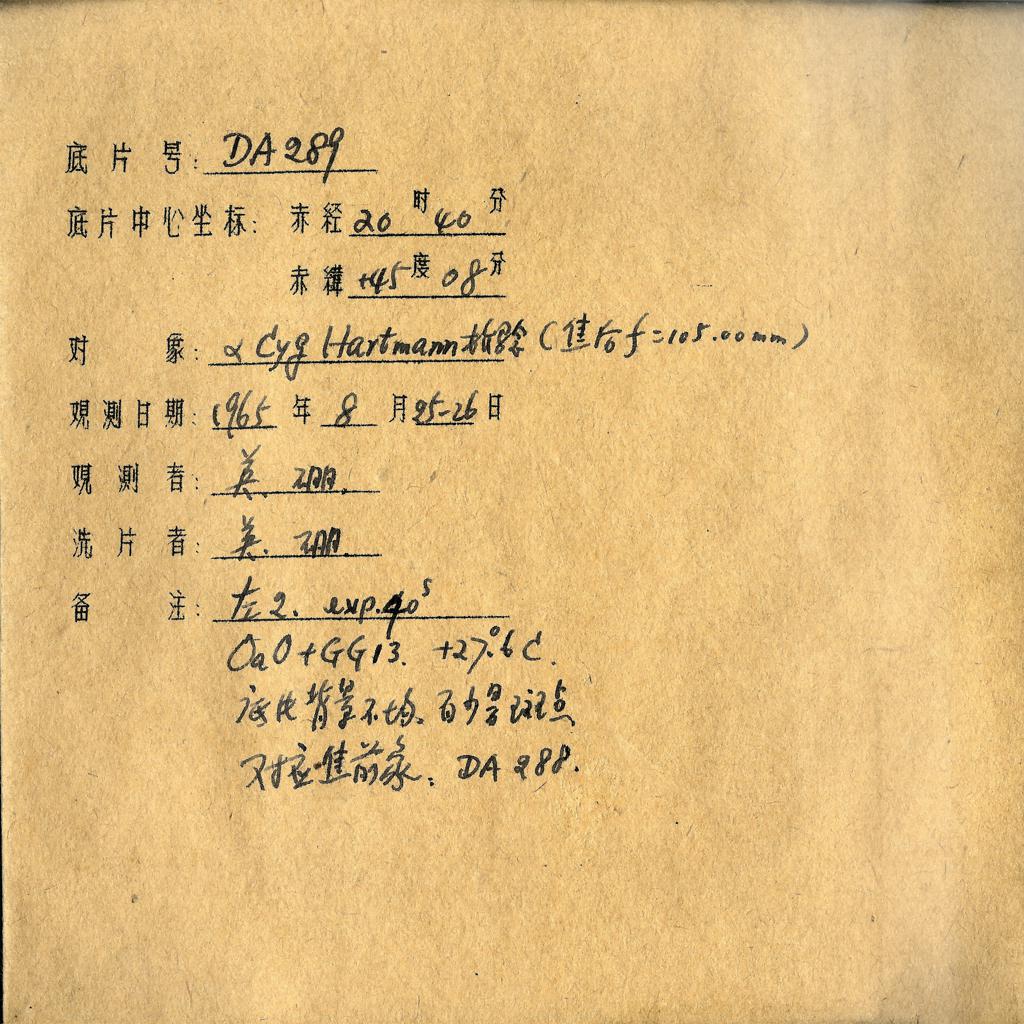 底片号: DA289
底片中心坐标: 赤经 20时40分
赤纬 +45度08分
对象: α Cyg Hartmann (焦后 f=105.00mm)
观测日期: 1965年8月25-26日
观测者: 英. 珊.
洗片者: 英. 珊.
备注: 左2. exp.40ˢ
OaO+GG13. +27°.6C.
底片背景不均. 有少量斑点
对应焦前象: DA288.